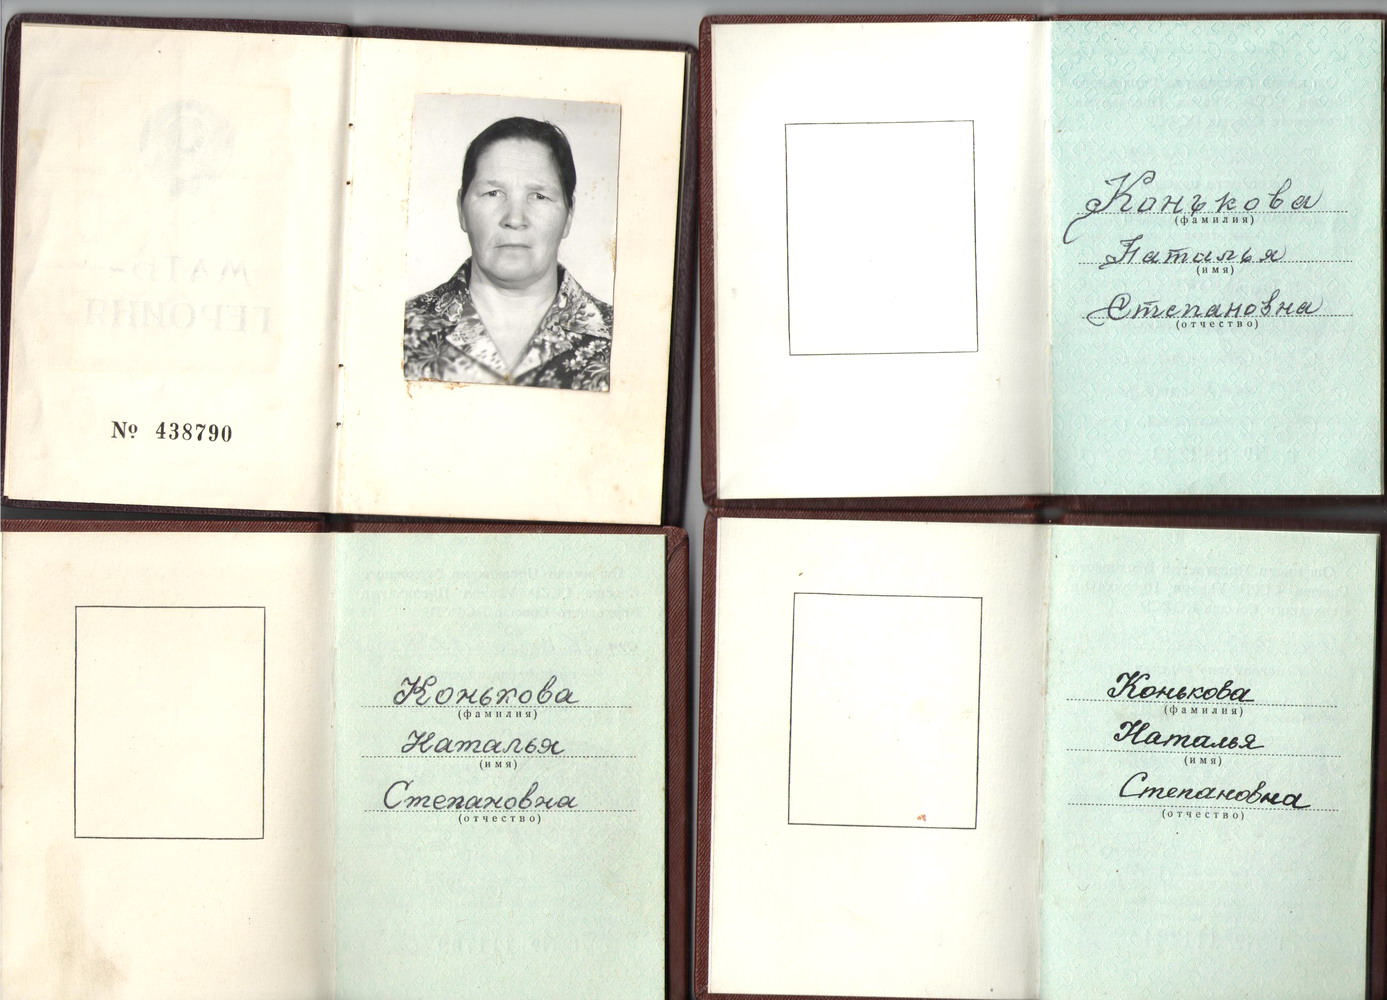 МАТЬ-
ГЕРОИНЯ
№ 438790
Конькова
(фамилия)
Наталья
(имя)
Степановна
(отчество)
Конькова
(фамилия)
Наталья
(имя)
Степановна
(отчество)
Конькова
(фамилия)
Наталья
(имя)
Степановна
(отчество)